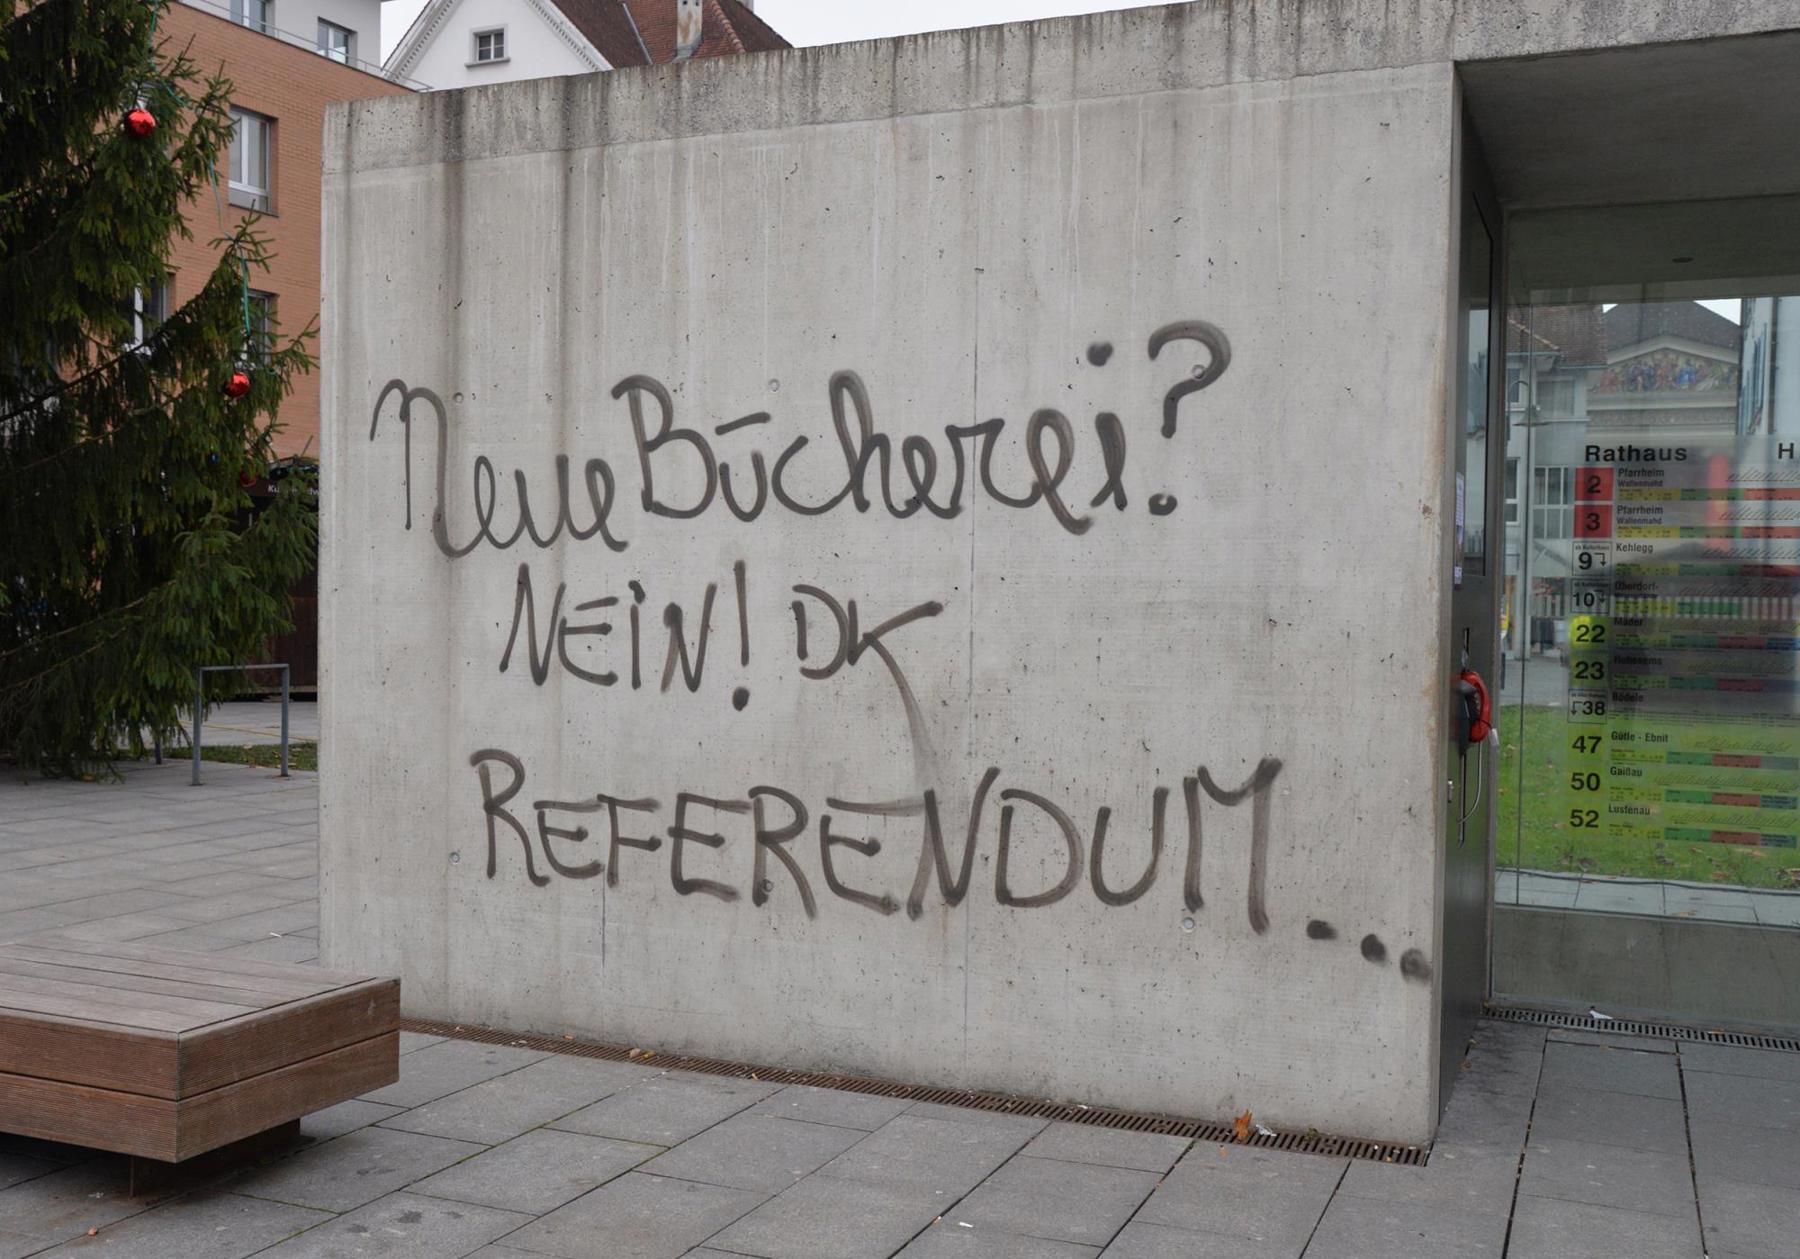 Neue Bücherei?
NEIN! DK
REFERENDUM...
Rathaus
H
2 Pfarrheim
Wallenmahd
3 Pfarrheim
Wallenmahd
9 Kehlegg
10 Oberdorf-
22 Mäder
23 Hohenems
38 Bödele
47 Gütle - Ebnit
50 Gaißau
52 Lustenau